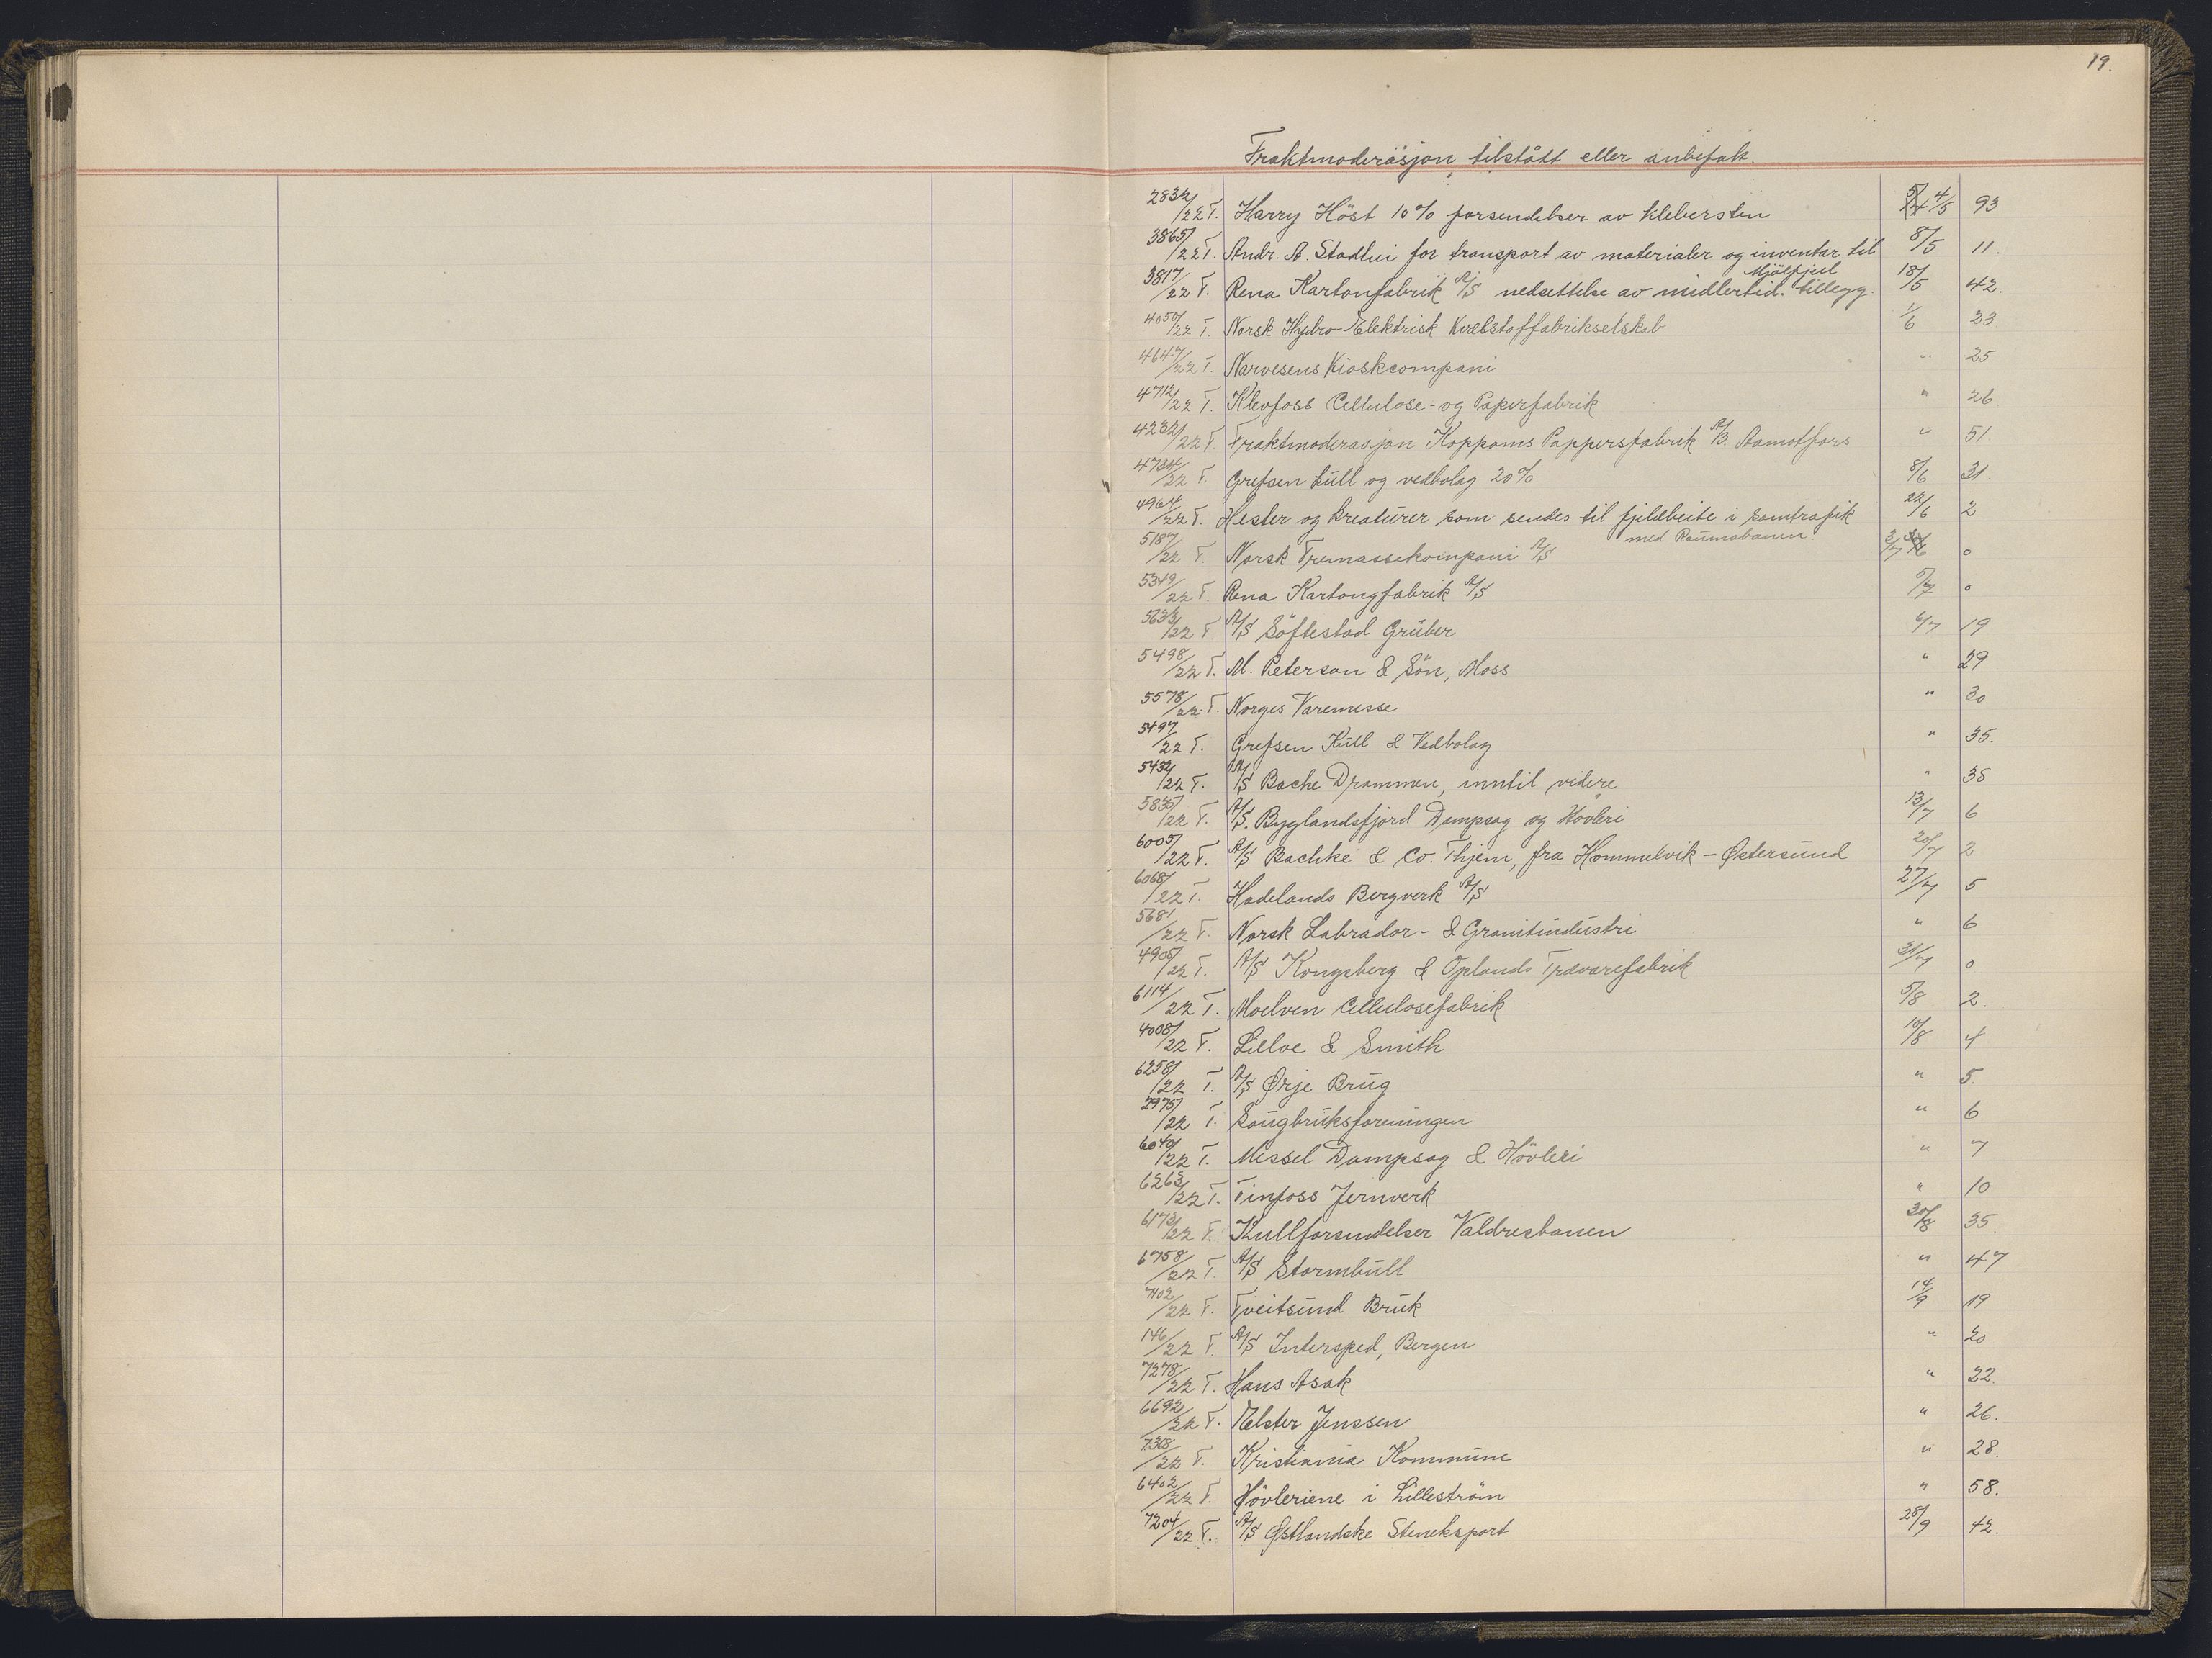 19.
Fraktmoderasjon tilstått eller anbefalt.
2832/22 T. Harry Höst 10% forsendelser av klebersten 4/5 93
3865/22 T. Andr. A. Stadhei for transport av materialer og inventar til 8/5 11.
Mjölfjell
3817/22 T. Rena Kartonfabrik A/S nedsettelse av midlertid. tillegg. 18/5 42.
4050/22 T. Norsk Hydro-Elektrisk Kvelstoffabrikselskab 1/6 23
4647/22 T. Narvesens Kioskcompani " 25
4712/22 T. Klevfoss Cellulose- og Papirfabrik " 26
4232/22 T. Fraktmoderasjon Koppoms Pappersfabrik A/B. Aamotfors " 51.
4734/22 T. Grefsen kull og vedbolag 20% 8/6 31.
4964/22 T. Hester og kreaturer som sendes til fjeldbeite i samtrafik 22/6 2
med Raumabanen.
5187/22 T. Norsk Tremassekompani A/S 3/7 0
5349/22 T. Rena Kartongfabrik A/S 5/7 0
5633/22 T. A/S Söftestad Gruber 6/7 19
5498/22 T. M. Peterson & Sön, Moss " 29
5578/22 T. Norges Varemesse " 30
5497/22 T. Grefsen Kull & Vedbolag " 35.
5432/22 T. A/S Bache Drammen, inntil videre " 38
5836/22 T. A/S. Byglandsfjord Dampsag og Hövleri 13/7 6
6005/22 T. A/S Bachke & Co. Thjem, fra Hommelvik - Østersund 20/7 2
6068/22 T. Hadelands Bergverk A/S 27/7 5
5681/22 T. Norsk Labrador- & Granitindustri " 6
4905/22 T. A/S Kongsberg & Oplands Trævarefabrik 31/7 0
6114/22 T. Moelven Cellulosefabrik 5/8 2.
4008/22 T. Lilloe & Smith 10/8 4
6258/22 T. A/S Ørje Brug " 5.
2975/22 T. Saugbruksforeningen " 6
6040/22 T. Messel Dampsag & Hövleri " 7
6263/22 T. Tinfoss Jernverk " 10
6173/22 T. Kullforsendelser Valdresbanen 30/8 35
6758/22 T. A/S Stormbull " 47
7102/22 T. Tveitsund Bruk 14/9 19
146/22 T. A/S Intersped, Bergen " 20
7278/22 T. Hans Asak " 22.
6692/22 T. Elster Jenssen " 26.
7368/22 T. Kristiania Kommune " 28.
6402/22 T. Hövleriene i Lilleström " 58.
7204/22 T. A/S Østlandske Steneksport 28/9 42.